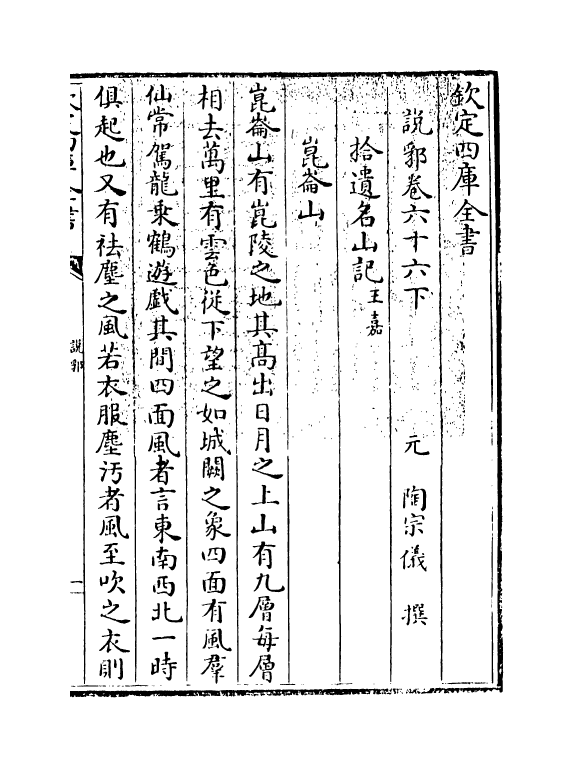 欽定四庫全書
說郛卷六十六下　元　陶宗儀　撰
拾遺名山記王嘉
崑崙山
崑崙山有崑陵之地其髙出日月之上山有九層每層
相去萬里有雲色從下望之如城闕之象四面有風羣
仙常駕龍乗鶴遊戯其間四面風者言東南西北一時
俱起也又有袪塵之風若衣服塵汚者風至吹之衣則
說郛
一